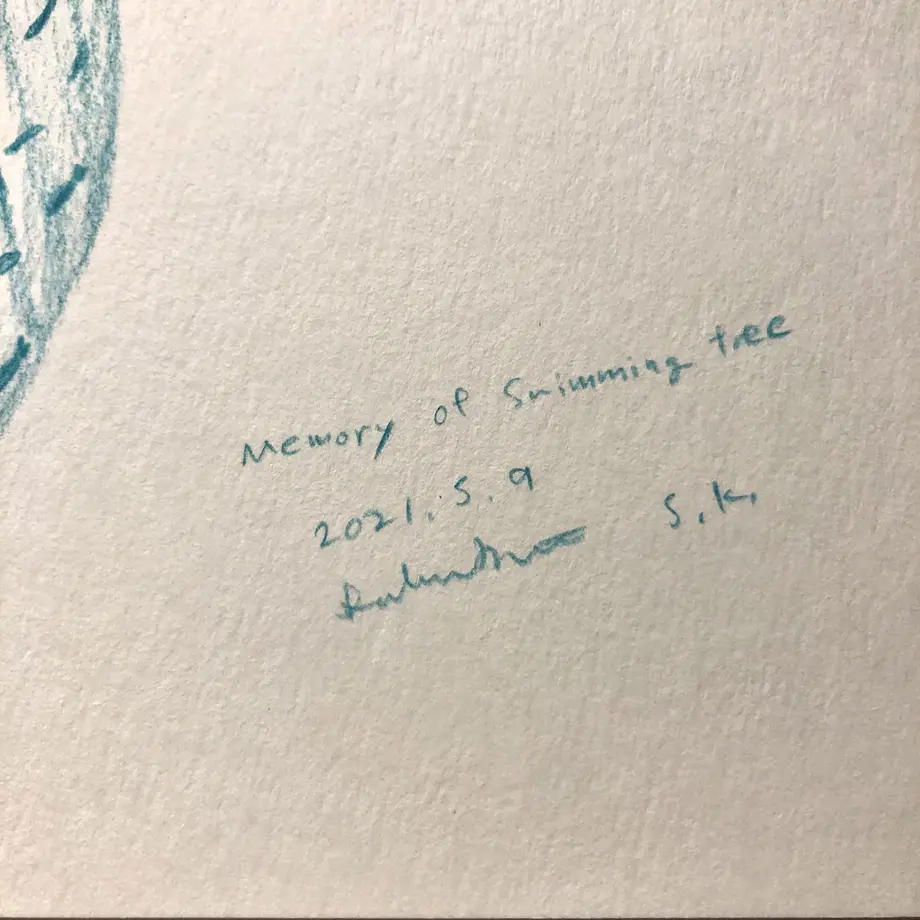 Memory of Swimming tree
2021.5.9
S.K.